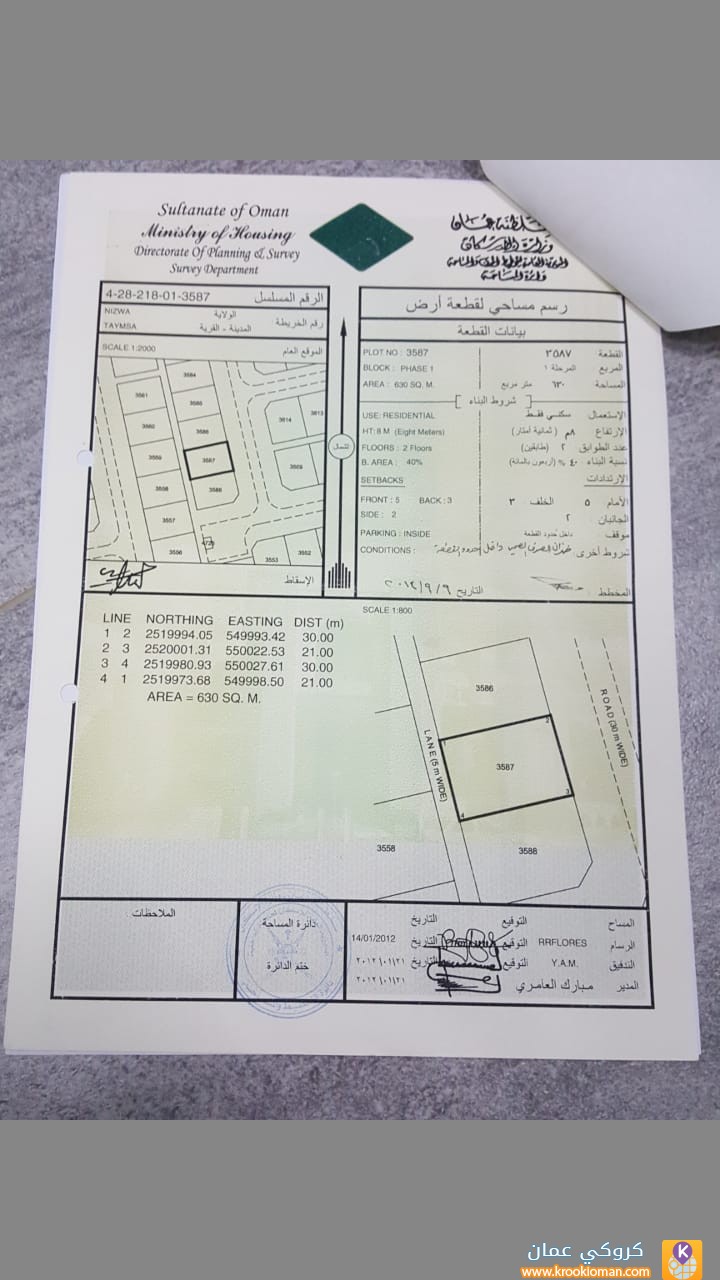 Sultanate of Oman
Ministry of Housing
Directorate Of Planning & Survey
Survey Department
سلطنة عمان
وزارة الإسكان
دائرة المساحة
4-28-218-01-3587
الرقم المسلسل
NIZWA
الولاية
TAYMSA
المدينة - القرية
رقم الخريطة
SCALE 1:2000
الموقع العام
3584
3561
3585
3560
3586
3614
3613
3559
3587
3609
3558
3588
3557
3556
4729
3553
3552
الإسقاط
الشمال
رسم مساحي لقطعة أرض
بيانات القطعة
PLOT NO : 3587
القطعة ٣٥٨٧
BLOCK : PHASE 1
المربع المرحلة ١
AREA : 630 SQ. M.
المساحة ٦٣٠ متر مربع
[ شروط البناء ]
USE: RESIDENTIAL
الإستعمال سكني فقط
HT: 8 M (Eight Meters)
الإرتفاع ٨م (ثمانية أمتار)
FLOORS : 2 Floors
عدد الطوابق ٢ (طابقين)
B. AREA : 40%
نسبة البناء ٤٠ % (أربعون بالمائة)
SETBACKS
الإرتدادات
FRONT : 5 BACK : 3
الأمام ٥ الخلف ٣
SIDE : 2
الجانبان ٢
PARKING : INSIDE
موقف داخل حدود القطعة
CONDITIONS :
شروط أخرى خزان الصرف الصحي داخل حدود القطعة
المخطط
التاريخ ٢٠١٢/٩/٩
SCALE 1:800
LINE NORTHING EASTING DIST (m)
1 2 2519994.05 549993.42 30.00
2 3 2520001.31 550022.53 21.00
3 4 2519980.93 550027.61 30.00
4 1 2519973.68 549998.50 21.00
AREA = 630 SQ. M.
3586
ROAD (30 m WIDE)
LANE (5 m WIDE)
1
2
3587
3
4
3558
3588
الملاحظات
دائرة المساحة
ختم الدائرة
المساح التوقيع التاريخ
الرسام RRFLORES التوقيع التاريخ 14/01/2012
التدقيق Y.A.M. التوقيع التاريخ ٢٠١٢/٠١/٢١
المدير مبارك العامري ٢٠١٢/٠١/٢١
كروكي عمان
www.krookloman.com